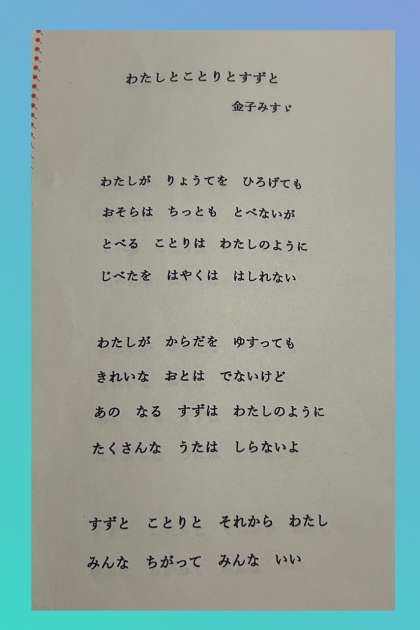 わたしとことりとすずと
金子みすゞ
わたしが　りょうてを　ひろげても
おそらは　ちっとも　とべないが
とべる　ことりは　わたしのように
じべたを　はやくは　はしれない
わたしが　からだを　ゆすっても
きれいな　おとは　でないけど
あの　なる　すずは　わたしのように
たくさんな　うたは　しらないよ
すずと　ことりと　それから　わたし
みんな　ちがって　みんな　いい